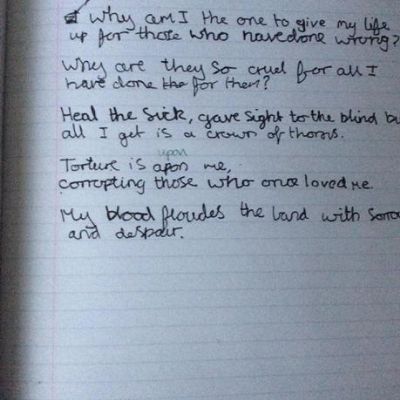 Why am I the one to give my life
up for those who have done wrong?
Why are they so cruel for all I
have done the for then?
Heal the sick, gave sight to the blind bu
all I get is a crown of thorns.
upon
Torture is apon me,
corrupting those who once loved me.
My blood floudes the land with Sorro
and despair.